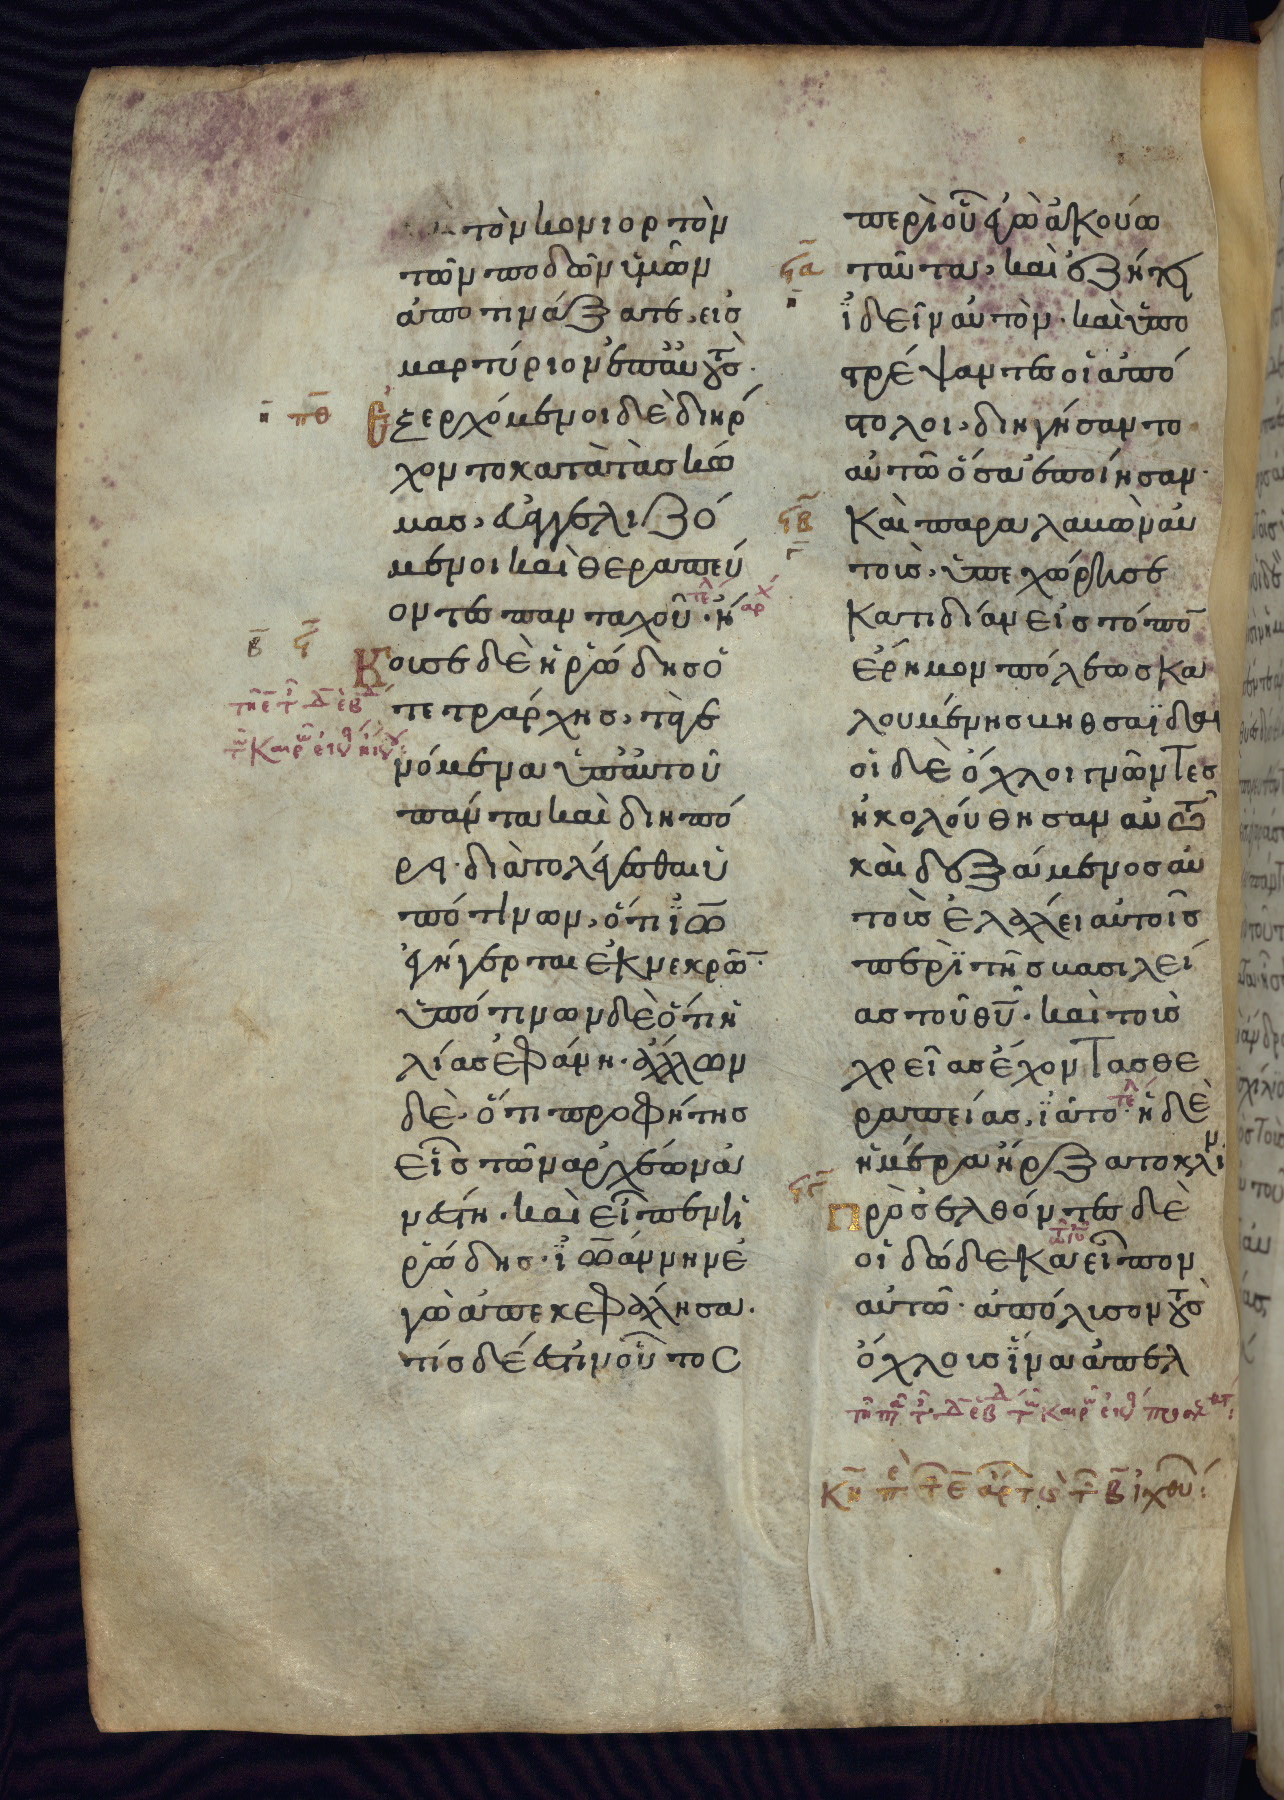 τὸν κονιορτὸν
τῶν ποδῶν ὑμῶν
ἀποτινάξατε, εἰσ
μαρτύριον ἐπ' αὐτούσ·
ἐξερχόμενοι δὲ διήρ
χοντο κατὰ τὰσ κώ
μασ, εὐαγγελιζό
μενοι καὶ θεραπεύ
οντεσ πανταχοῦ· ἤ
κουσε δὲ ἡρώδησ ὁ
τετράρχησ, τὰ γε
νόμενα ὑπ' αὐτοῦ
πάντα καὶ διηπό
ρει· διὰ τὸ λέγεσθαι ὑ
πό τινων, ὅτι ἰω
ἐγήγερται ἐκ νεκρῶν·
ὑπό τινων δὲ ὅτι ἡ
λίασ ἐφάνη· ἄλλων
δὲ· ὅτι προφήτησ
εἷσ τῶν ἀρχαίων ἀ
νέστη· καὶ εἶπεν ἡ
ρώδησ· ἰωάννην ἐ
γὼ ἀπεκεφάλησα·
τίσ δέ ἐστιν οὗτοσ
περὶ οὗ ἐγὼ ἀκούω
ταῦτα, καὶ ἐζήτει
ἰδεῖν αὐτὸν· καὶ ὑπο
στρέψαντεσ οἱ ἀπό
στολοι, διηγήσαντο
αὐτῶ ὅσα ἐποίησαν·
Καὶ παραλαβὼν αὐ
τοὺσ, ὑπεχώρησε
κατιδίαν εἰσ τόπο̄
ἔρημον πόλεωσ κα
λουμένησ βηθσαϊδά·
οἱ δὲ ὄχλοι γνόντεσ
ἠκολούθησαν αὐτῶ
καὶ δεξάμενοσ αὐ
τοὺσ ἐλάλει αὐτοῖσ
περὶ τῆσ βασιλεί
ασ τοῦ θῡ· καὶ τοὺσ
χρείασ ἔχοντασ θε
ραπείασ, ἰᾶτο· ἡ δὲ
ἡμέρα ἤρξατο κλίν
Προσελθόντεσ δὲ
οἱ δώδεκα εἶπον
αὐτῶ· ἀπόλυσον τοὺσ
ὄχλουσ ἵνα ἀπελ